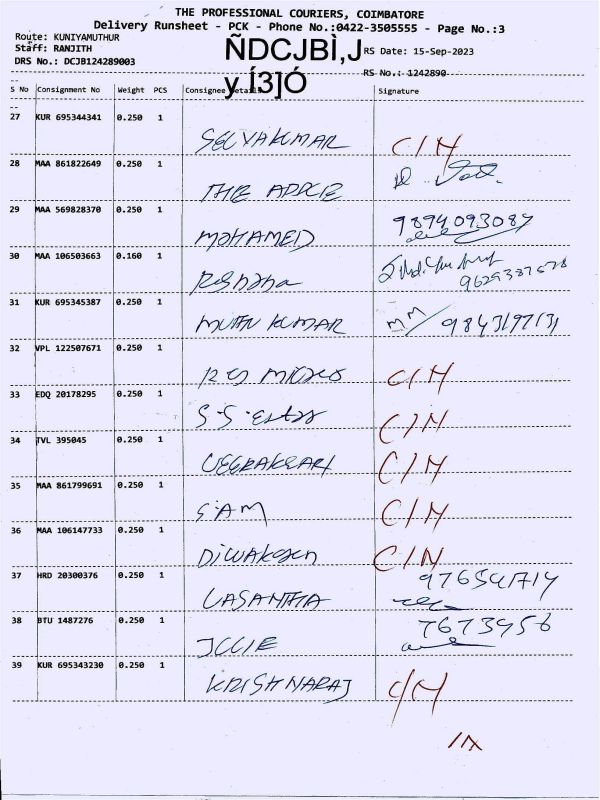 THE PROFESSIONAL COURIERS, COIMBATORE
Delivery Runsheet - PCK - Phone No.:0422-3505555 - Page No.:3
Route: KUNIYAMUTHUR
Staff: RANJITH ÑDCJBÌ,J RS Date: 15-Sep-2023
DRS No.: DCJB124289003 y Í3]Ó RS No.: 1242890
S No Consignment No Weight PCS Consignee Details Signature
27 KUR 695344341 0.250 1
SELVAKUMAR C/N
28 MAA 861822649 0.250 1
THE
29 MAA 569828370 0.250 1
MOHAMED 9894093087
30 MAA 106503663 0.160 1
Roshana
31 KUR 695345387 0.250 1
MUTHU KUMAR MM/ 9843197131
32 VPL 122507671 0.250 1
C/N
33 EDQ 20178295 0.250 1
S.S. C/N
34 TVL 395045 0.250 1
C/N
35 MAA 861799691 0.250 1
SAM C/N
36 MAA 106147733 0.250 1
C/N
37 HRD 20300376 0.250 1
VASANTHA
38 BTU 1487276 0.250 1
7673956
39 KUR 695343230 0.250 1
KRISHNARAJ C/N